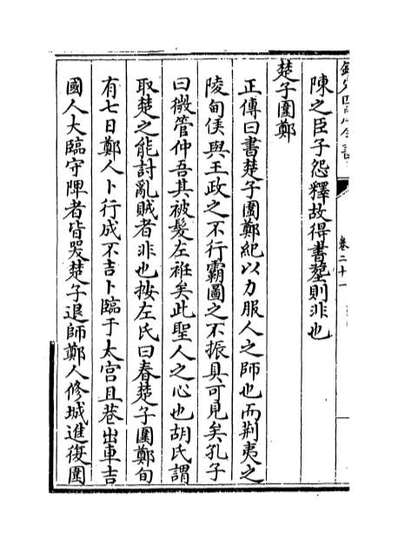 欽定四庫全書
卷二十一
陳之臣子怨釋故得書塟則非也
楚子圍鄭
正傳曰書楚子圍鄭紀以力服人之師也而荆夷之
陵甸侯與王政之不行霸圖之不振具可見矣孔子
曰微管仲吾其被髮左袵矣此聖人之心也胡氏謂
取楚之能討亂賊者非也按左氏曰春楚子圍鄭旬
有七日鄭人卜行成不吉卜臨于太宫且巷出車吉
國人大臨守陴者皆哭楚子退師鄭人修城進復圍